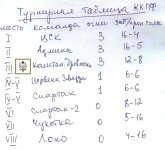 Турнирная таблица ККПФ
место команда очки заб/проп голы
I ЦСК 3 16-4
II Админа 3 16-5
III Капитал. Дрёвска 3 12-8
IV-V Црвена Звезда 1 6-6
IV-V Спартак 1 6-6
VI Спартак-2 0 8-12
VII Чукотка 0 5-16
VIII Локо 0 4-16